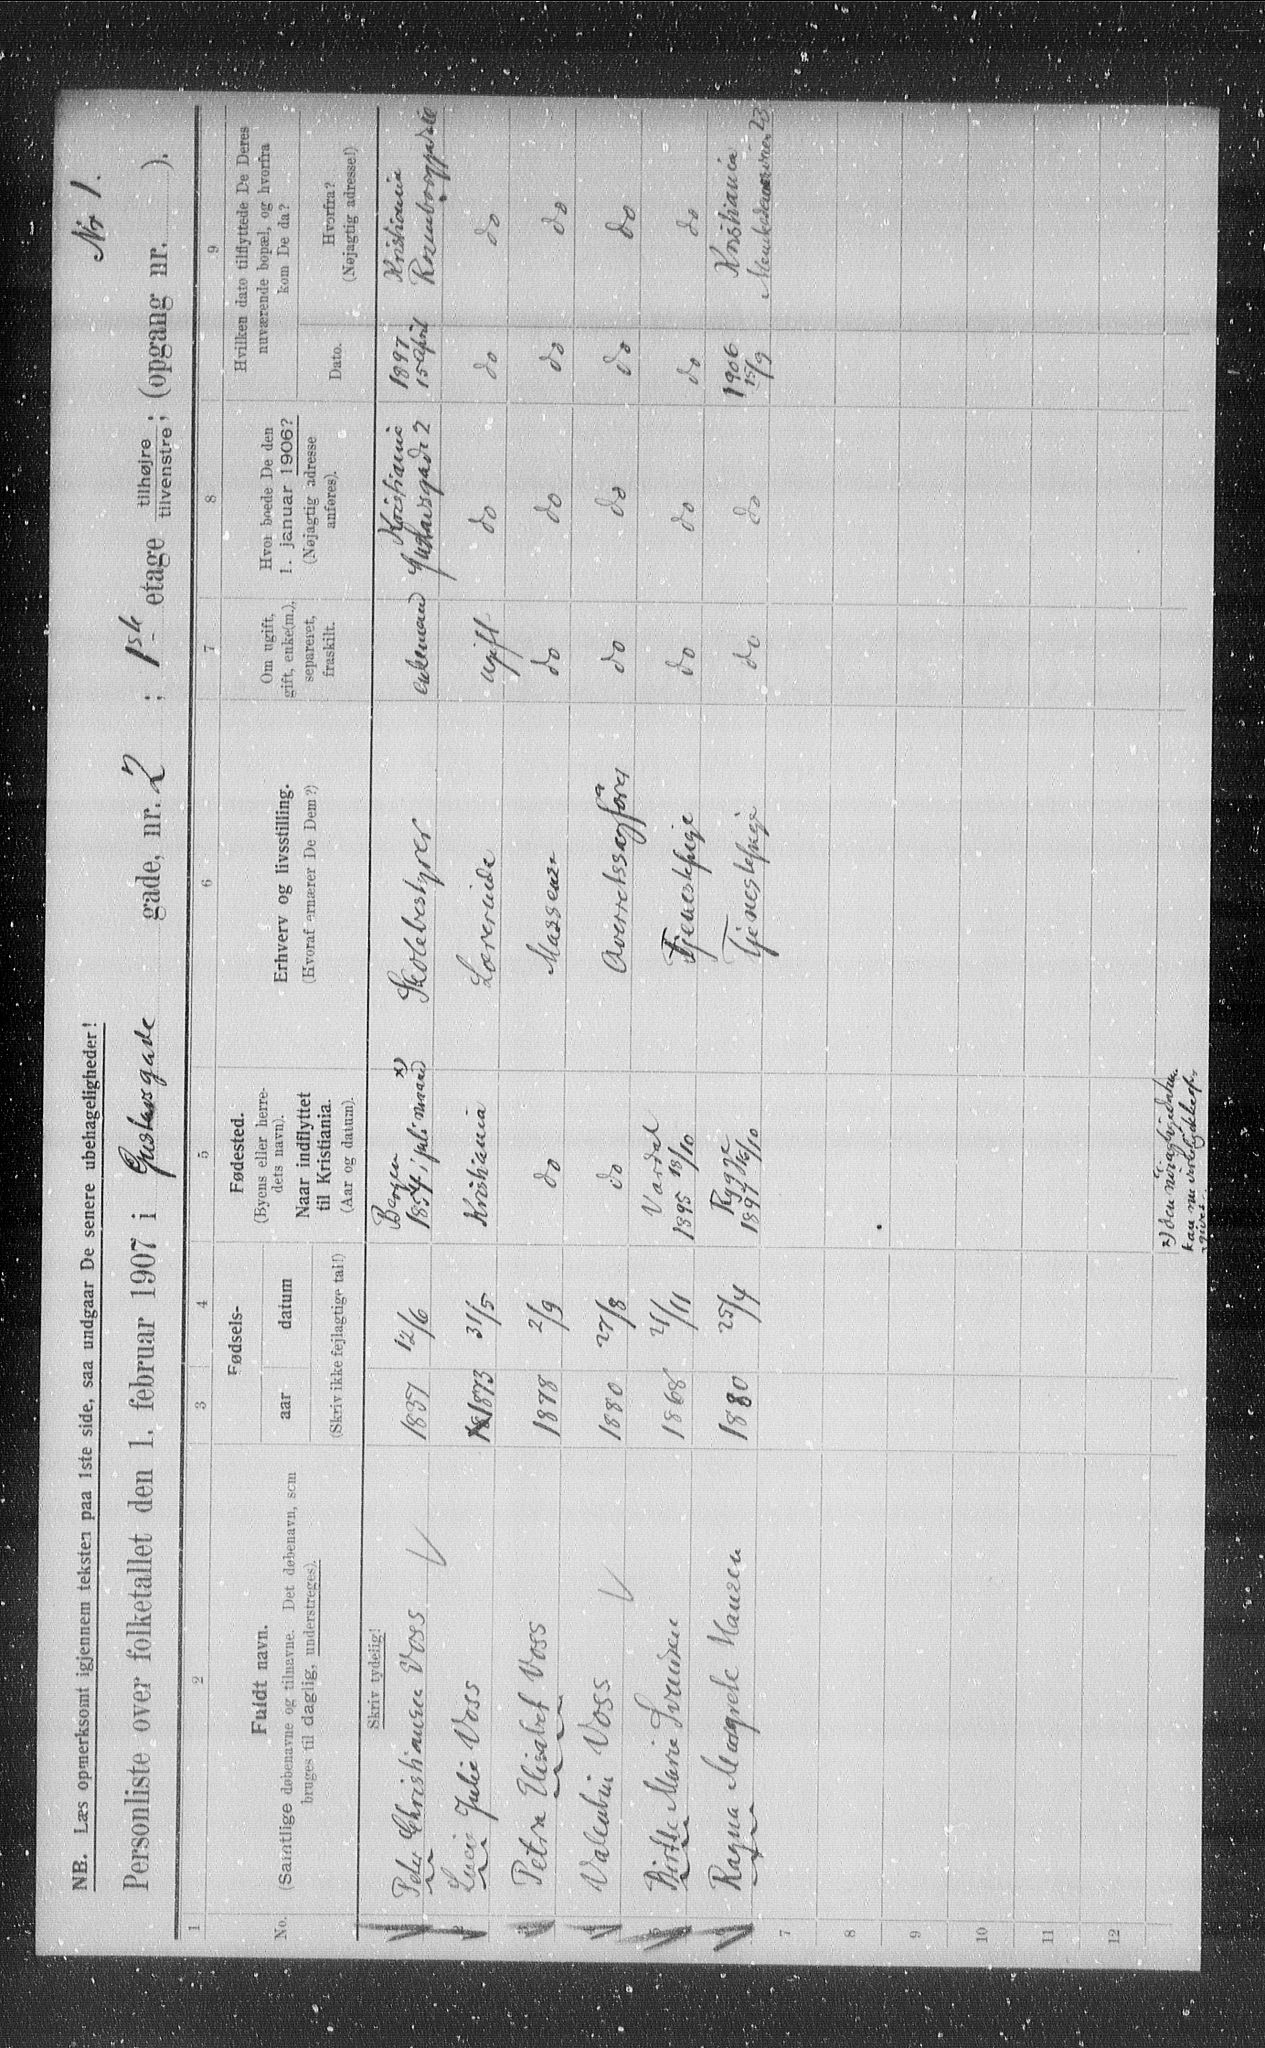 Nr 1.
NB. Læs opmerksomt igjennem teksten paa 1ste side, saa undgaar De senere ubehageligheder!
Personliste over folketallet den 1. februar 1907 i Gustavsgade gade, nr. 2 ; 1ste etage tilhøjre/tilvenstre; (opgang nr. ).
1 2 3 4 5 6 7 8 9
No.
Fuldt navn.
(Samtlige døbenavne og tilnavne. Det døbenavn, som
bruges til daglig, understreges).
Fødsels-
aar datum
(Skriv ikke fejlagtige tal!)
Fødested.
(Byens eller herre-
dets navn).
Naar indflyttet
til Kristiania.
(Aar og datum).
Erhverv og livsstilling.
(Hvoraf ernærer De Dem?)
Om ugift,
gift, enke(m.),
separeret,
fraskilt.
Hvor boede De den
1. januar 1906?
(Nøjagtig adresse
anføres).
Hvilken dato tilflyttede De Deres
nuværende bopæl, og hvorfra
kom De da?
Dato.
Hvorfra?
(Nøjagtig adresse!)
Skriv tydelig!
1 Peter Christian Voss 1837 12/6 Bergen 1854 i juli maaned x) Skolebestyrer enkemand Kristiania Gustavsgade 2 1897 15 april Kristiania
2 Lucie Julie Voss 1873 31/5 Kristiania Lærerinde ugift do do do
3 Petra Elisabet Voss 1878 2/9 do Massøse do do do do
4 Valentin Voss 1880 27/8 do Overretssagfører do do do do
5 Birthe Marie Svendsen 1868 21/11 Vardal 1895 18/10 Tjenestepige do do do do
6 Ragna Margrete Hansen 1880 25/4 Rygge 1897 16/10 Tjenestepige do do 1906 15/9 Kristiania 23
7
8
9
10
11
12
x) den nøiagtige datum
kan nu